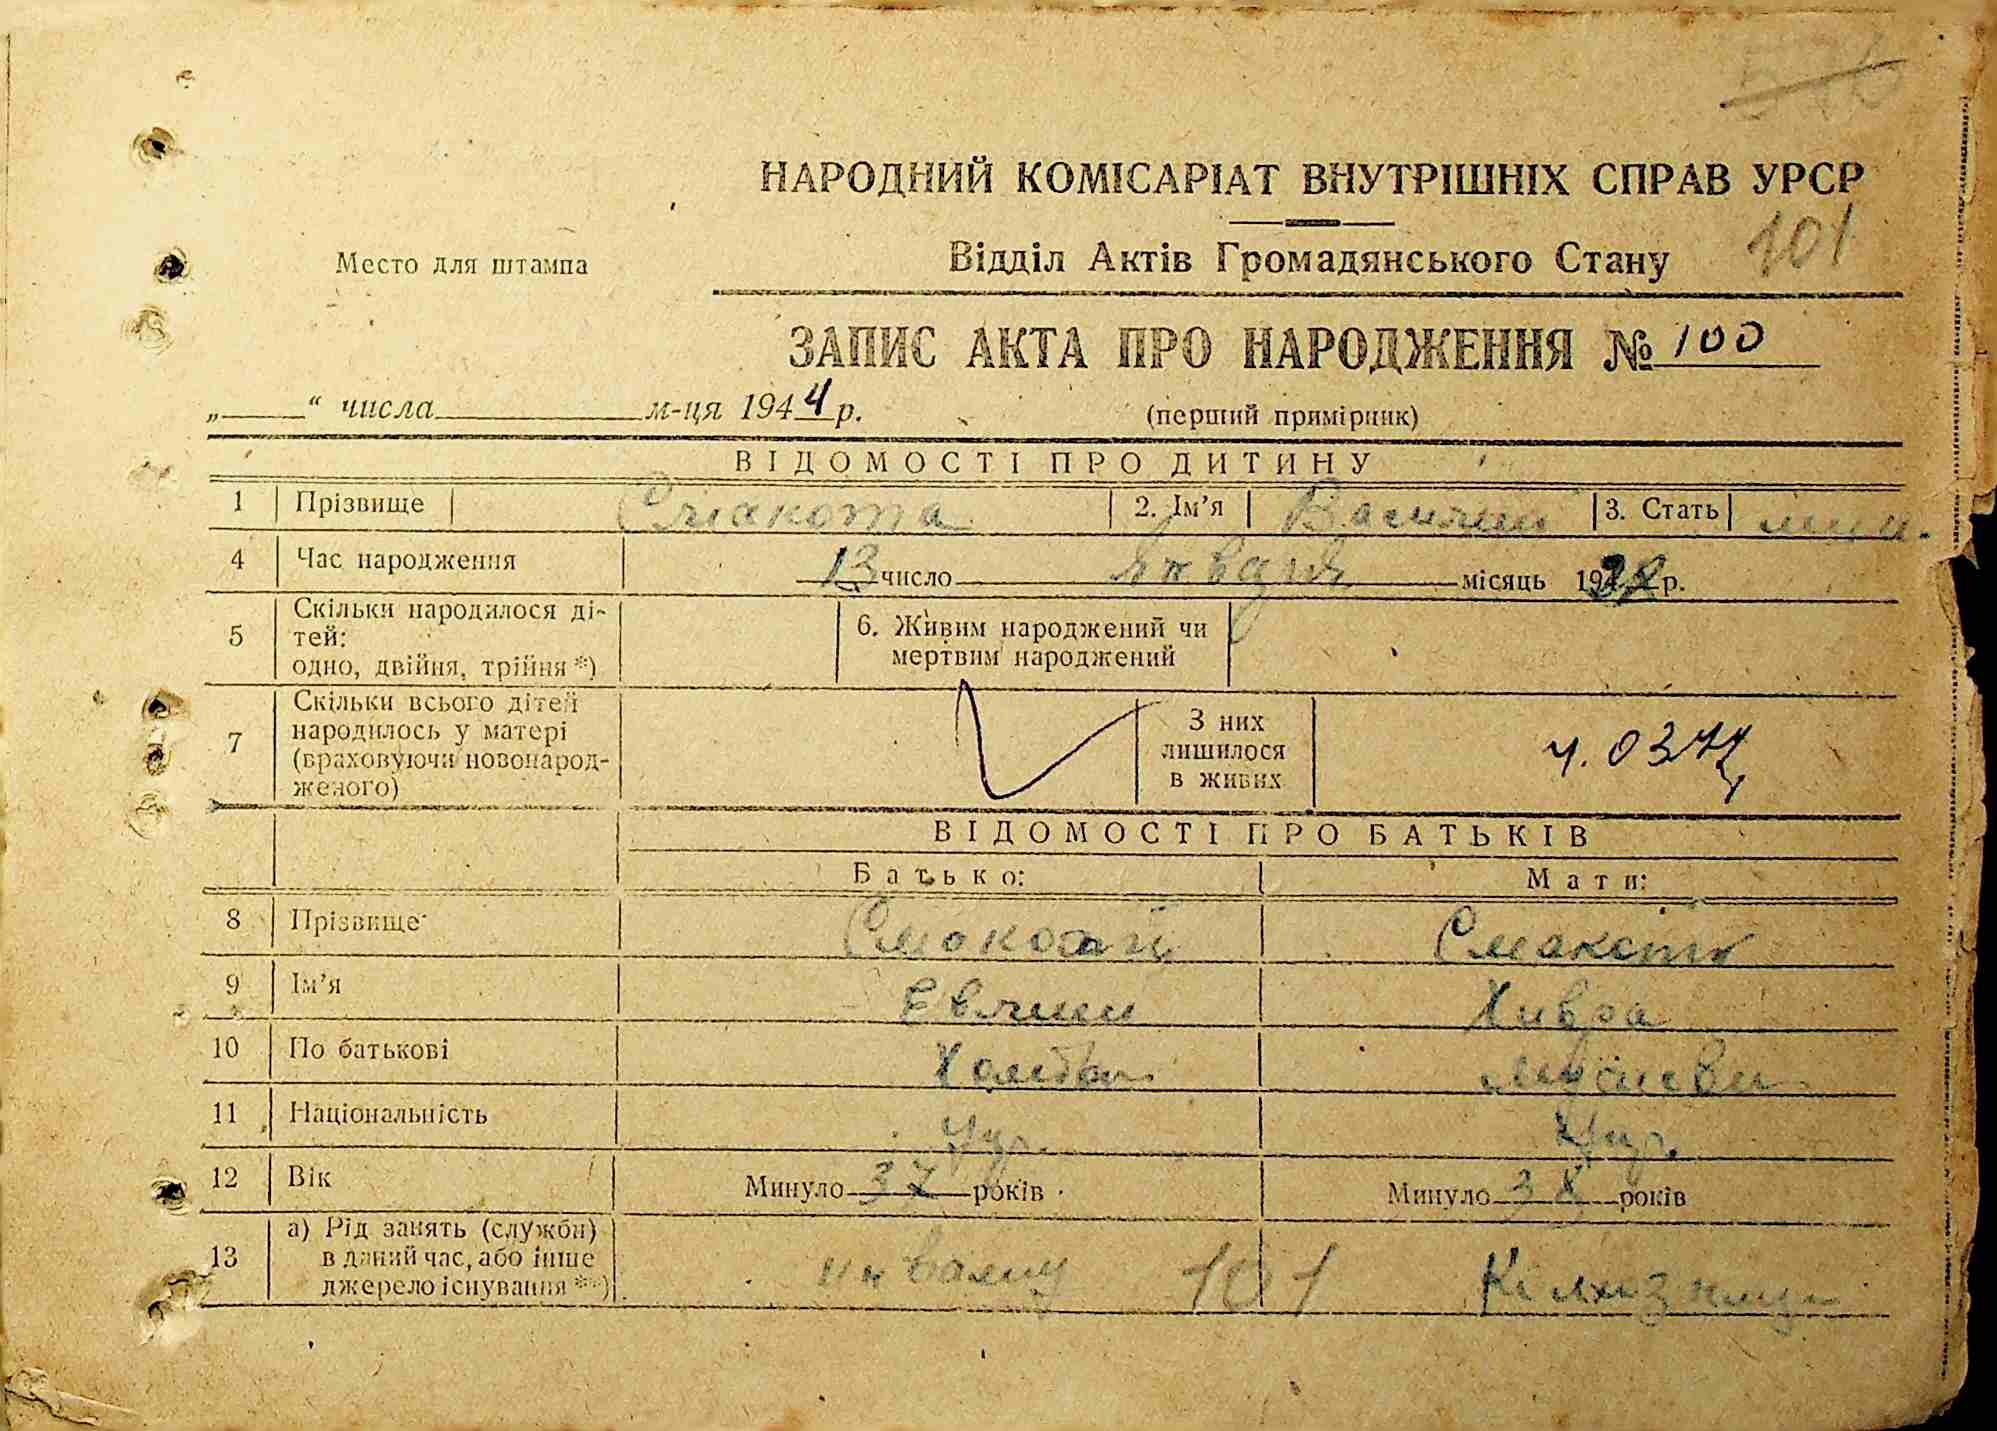 НАРОДНИЙ КОМІСАРІАТ ВНУТРІШНІХ СПРАВ УРСР
Место для штампа
Відділ Актів Громадянського Стану 101
ЗАПИС АКТА ПРО НАРОДЖЕННЯ № 100
„ “ числа м-ця 1944 р. (перший примірник)
ВІДОМОСТІ ПРО ДИТИНУ
1 Прізвище Смакота 2. Ім’я Василий 3. Стать
4 Час народження 13 число января місяць р.
5 Скільки народилося ді-
тей:
одно, двійня, трійня *)
6. Живим народжений чи
мертвим народжений
7 Скільки всього дітей
народилось у матері
(враховуючи новонарод-
женого)
З них
лишилося
в живих
ВІДОМОСТІ ПРО БАТЬКІВ
Батько: Мати:
8 Прізвище
9 Ім’я Хивра
10 По батькові
11 Національність Укр. Укр.
12 Вік Минуло 37 років Минуло 38 років
13 а) Рід занять (служби)
в даний час, або інше
джерело існування **)
101